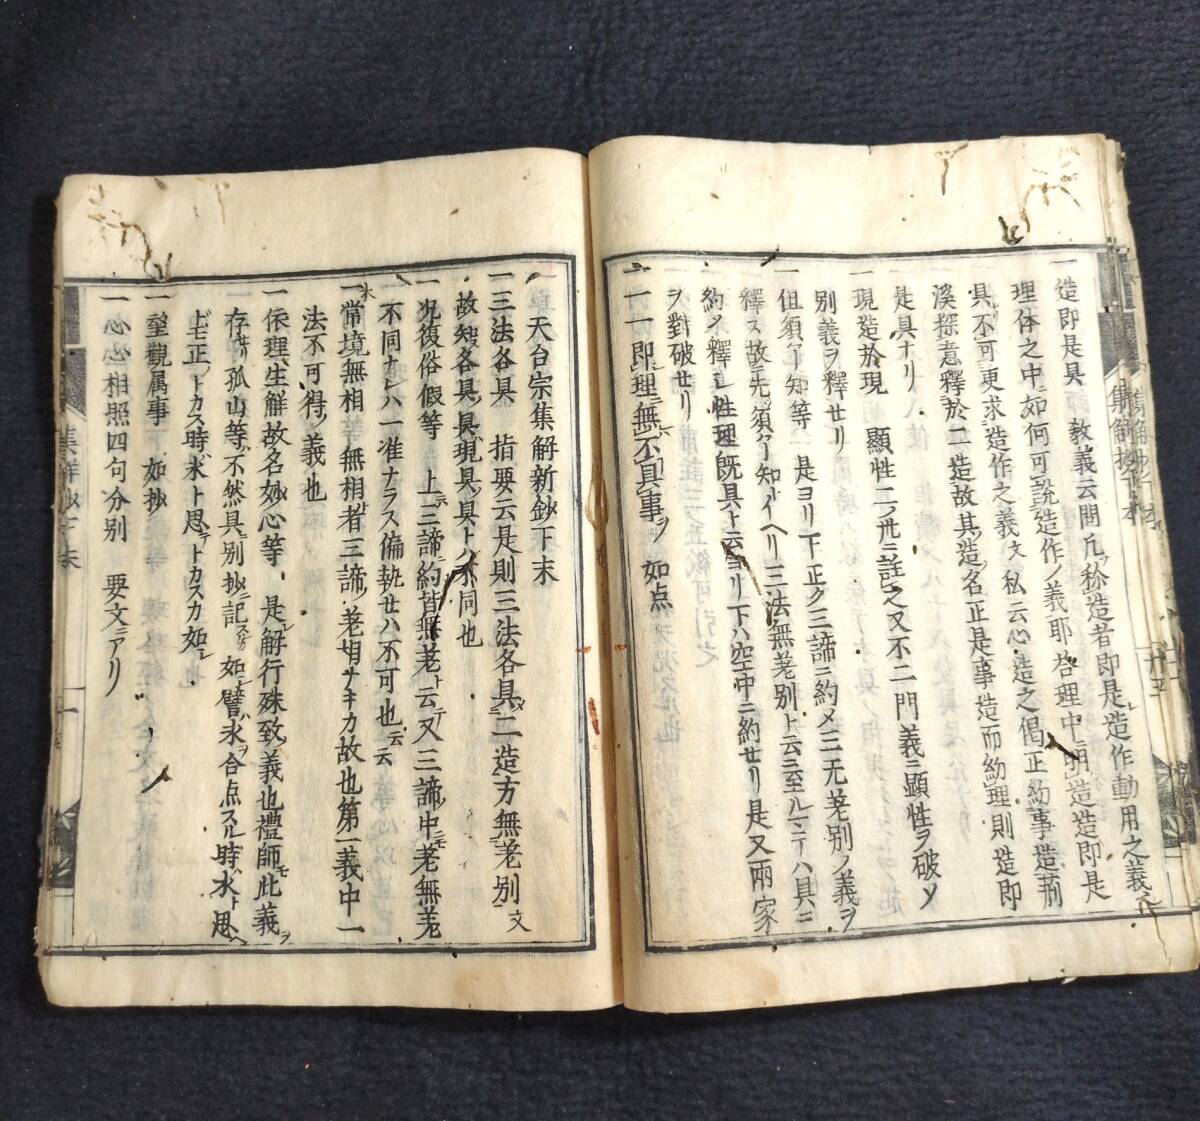 一造即是具 教義云問凡ソ称造者即是造作動用之義
理体之中ニ如何可説造作ノ義耶 答理中ニ明造即是
具不可更求造作之義文 私云心造之偈正約事造荊
溪探意釋於二造故其造ノ名正是事造而約理則造即
是具ナリ
一現造於現 顯性二ノ卅三ニ註之又不二門義ニ顯性ヲ破メ
別義ヲ釋セリ
一但須了知等 是ヨリ下正ク三諦ニ約メ三无差別ノ義ヲ
釋ス故ニ先ツ須了知トイヘリ三法無差別ト云ニ至ルマテハ具ニ
約メ釋シ性理既具ト云ヨリ下ハ空中ニ約セリ是又兩家
ヲ對破セリ
一一一即理無不真事 如点
天台宗集解新鈔下末
一三法各具 指要云是則三法各具二造方無差別文
故知各具ノ具現具ノ具トハ不同也
一况復俗假等 上ニ三諦ニ約皆無差ト云テ又三諦中ニモ差無差
不同ナレハ一准ナラス偏執セハ不可也云云
一常境無相等 無相ト者三諦ノ差相ナキカ故也第一義中一
法不可得ノ義也
一依理生解故名妙心等 是レ解行殊致ノ義也禮師モ此義ヲ
存セリ孤山等ハ不然具ニ別抄ニ記スルカ如譬氷ヲ合点スル時ハ水ト思ヘ
トモ正トカス時ハ氷ト思テトカスカ如シ
一望觀属事 如抄
一心心相照四句分別 要文ニアリ
集解抄下本
廿五
集解抄下末
一